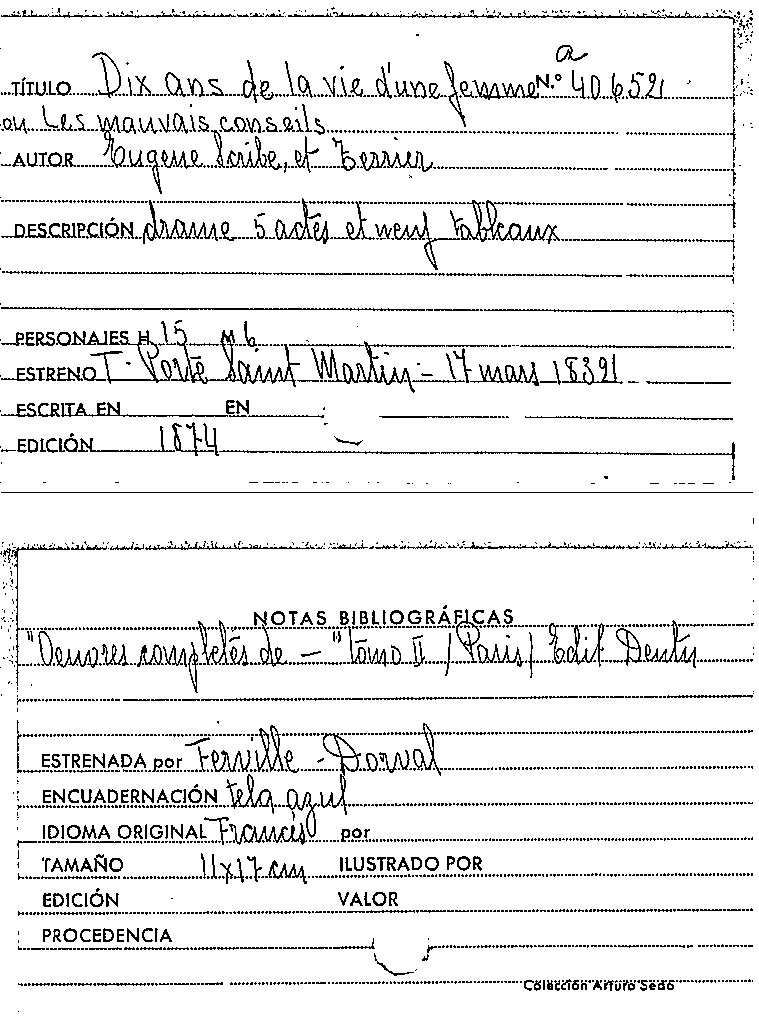 a
TÍTULO Dix ans de la vie d'une femme N.º 40652
ou Les mauvais conseils
AUTOR Eugene Scribe, et Terrier
DESCRIPCIÓN drame 5 actes et neuf tableaux
PERSONAJES H 15 M 6
ESTRENO T. Porte Saint Martin - 17 mars 1832
ESCRITA EN EN
EDICIÓN 1874
NOTAS BIBLIOGRÁFICAS
"Oeuvres completés de - " tomo II / Paris / Edit Dentu
ESTRENADA por Ferville - Dorval
ENCUADERNACIÓN tela azul
IDIOMA ORIGINAL Francés por
TAMAÑO 11x17 cm ILUSTRADO POR
EDICIÓN VALOR
PROCEDENCIA
Colección Arturo Sedó